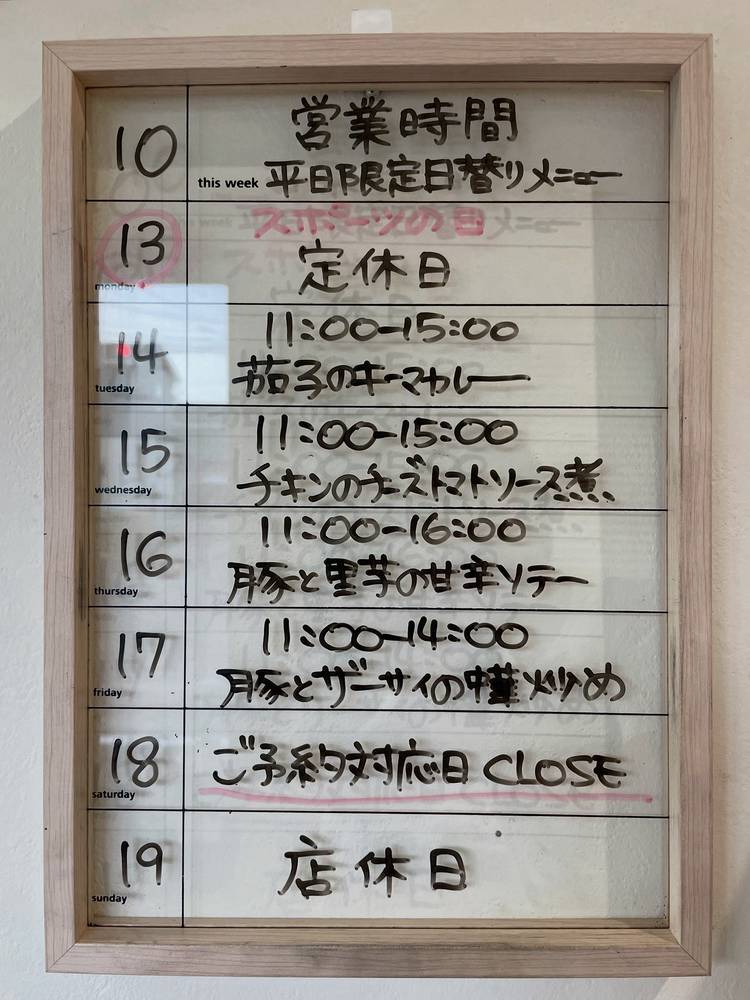 10
営業時間
this week 平日限定日替りメニュー
13
monday
スポーツの日
定休日
14
tuesday
11:00-15:00
茄子のキーマカレー
15
wednesday
11:00-15:00
チキンのチーズトマトソース煮
16
thursday
11:00-16:00
豚と里芋の甘辛ソテー
17
friday
11:00-14:00
豚とザーサイの中華炒め
18
saturday
ご予約対応日 CLOSE
19
sunday
店休日